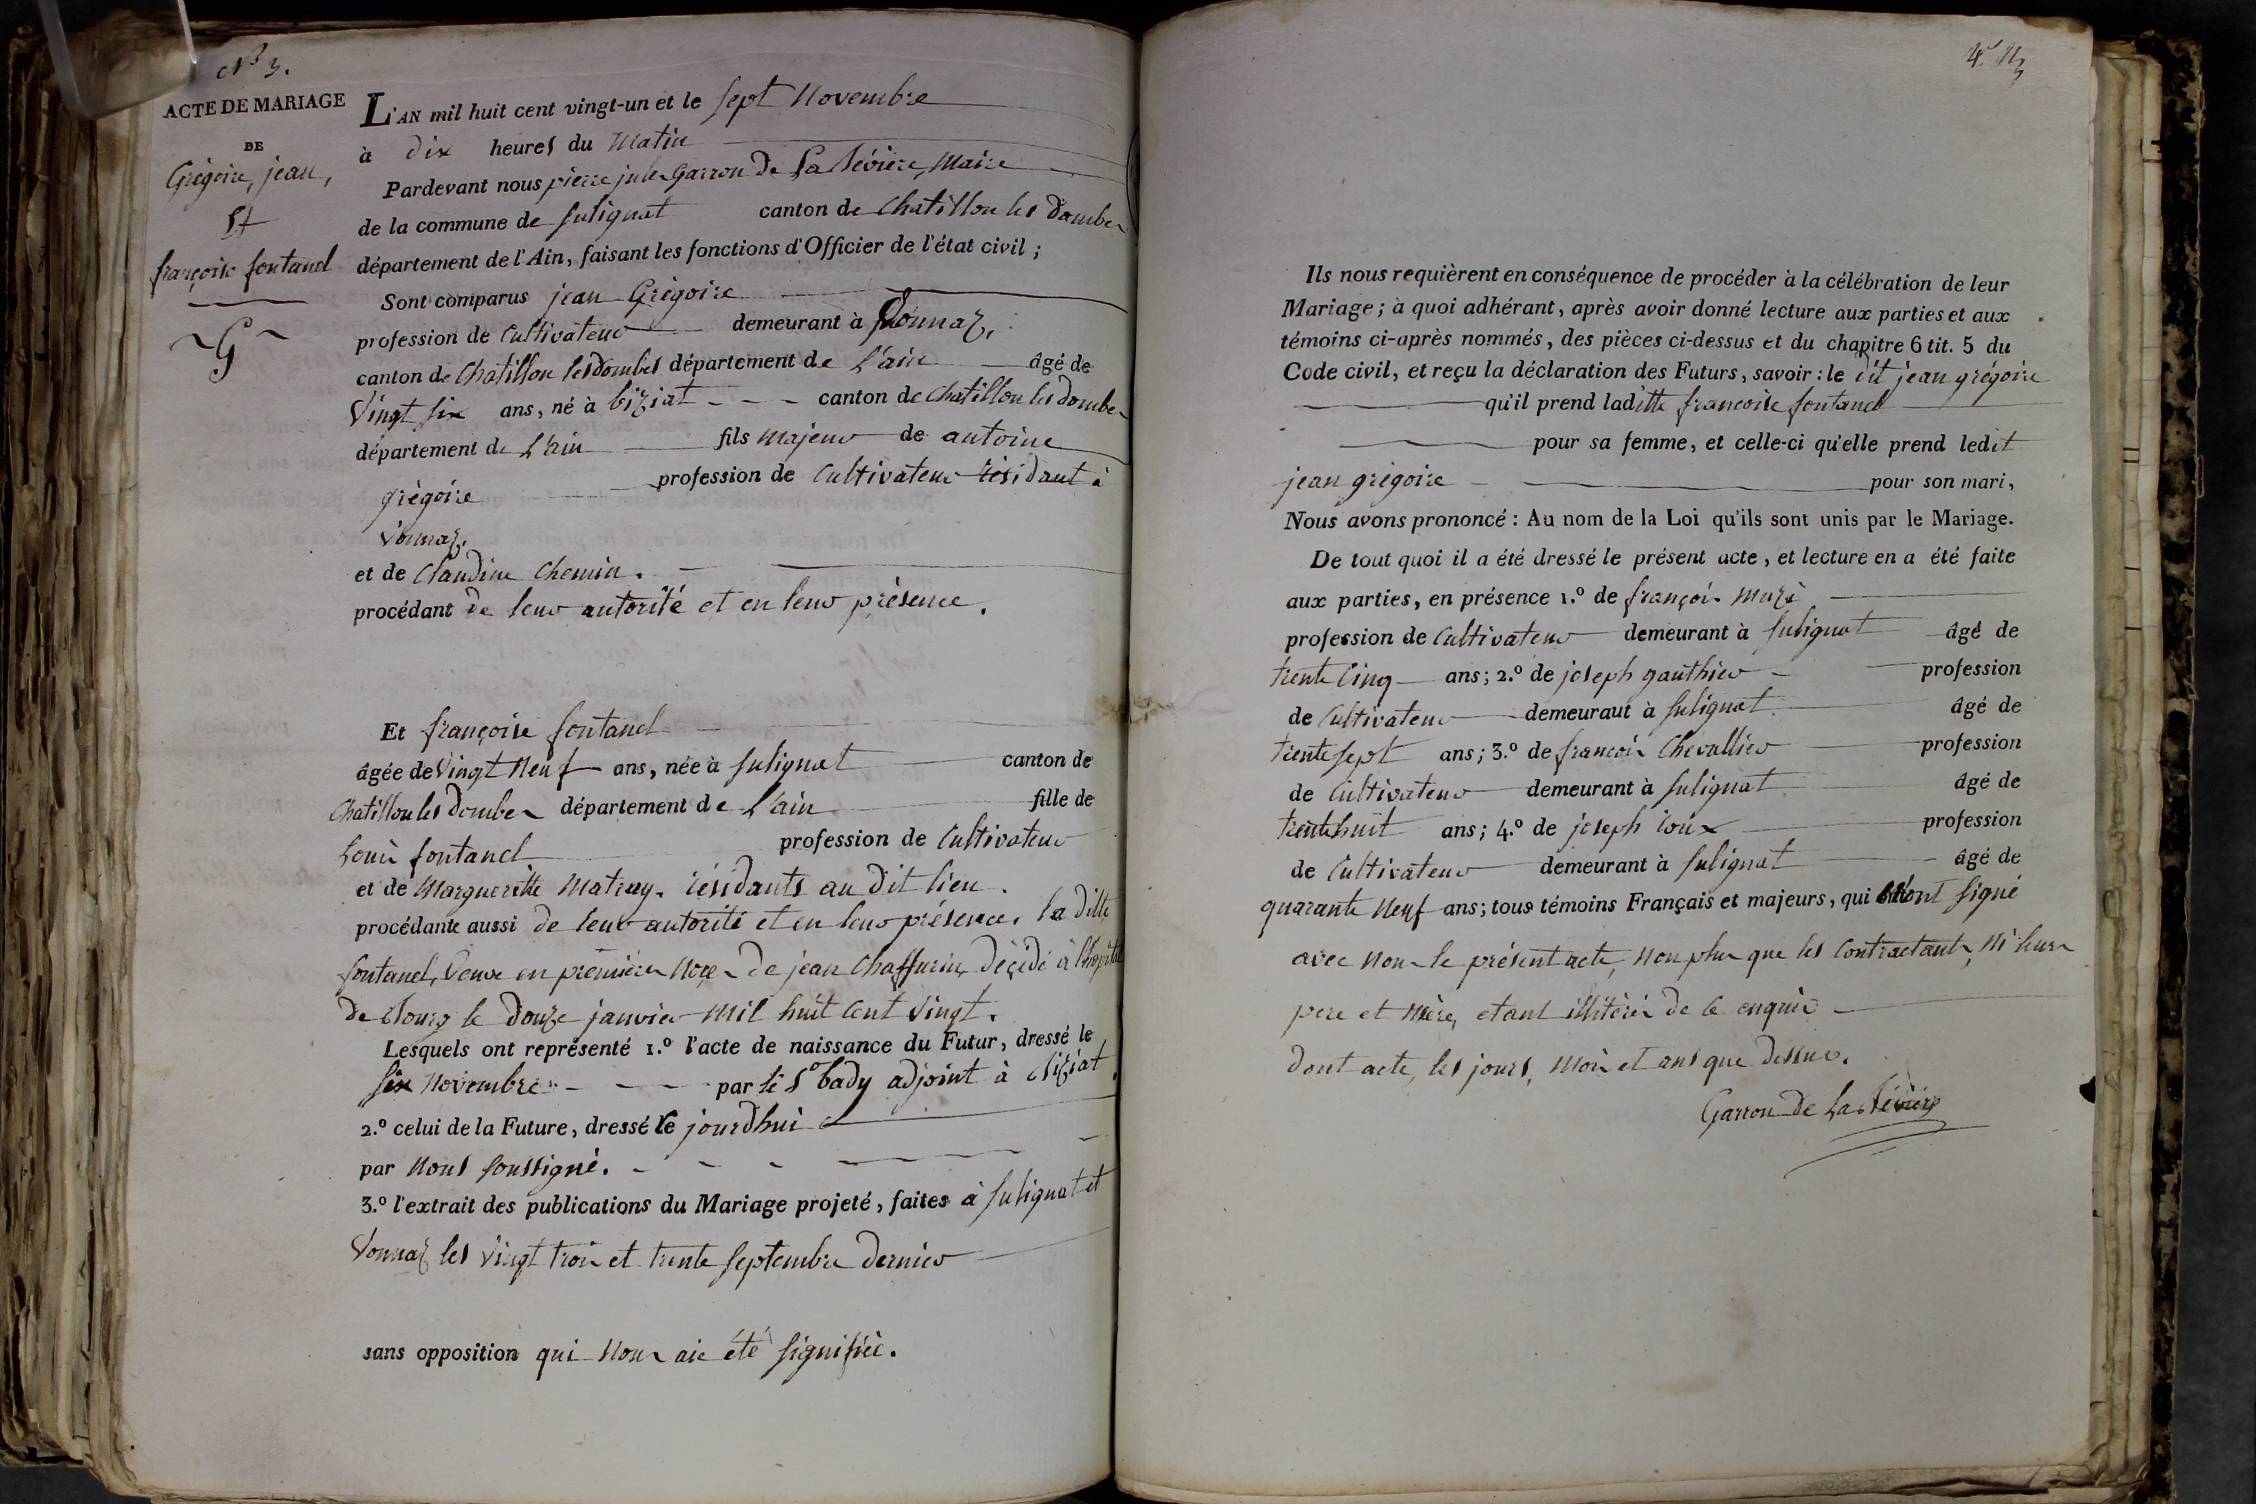 N° 3.
ACTE DE MARIAGE
DE
Grégoire, jean,
Et
françoise fontanel
G
L'AN mil huit cent vingt-un et le sept Novembre
à dix heures du Matin
Pardevant nous pierre jules Garron de La Sévière, Maire
de la commune de Sulignat canton de Chatillon les Dombes
département de l'Ain, faisant les fonctions d'Officier de l'état civil ;
Sont comparus jean Grégoire
profession de Cultivateur demeurant à Vonnaz,
canton de Chatillon les dombes département de L'ain âgé de
Vingt six ans, né à biziat canton de Chatillon les dombes
département de L'ain fils majeur de antoine
grégoire profession de Cultivateur résidant à
Vonnaz.
et de Claudine Chemin.
procédant de leur autorité et en leur présence.
Et françoise fontanel
âgée de Vingt Neuf ans, née à Sulignat canton de
Chatillon les Dombes département de L'ain fille de
Louis fontanel profession de Cultivateur
et de Margueritte Matray. résidants au dit lieu.
procédante aussi de leur autorité et en leur présence. la ditte
fontanel, Veuve en premières Noces de jean Chaffurin, décédé à l'hôpital
de Bourg le Douze janvier Mil huit Cent Vingt.
Lesquels ont représenté 1.º l'acte de naissance du Futur, dressé le
Six Novembre par le Sr bady adjoint à Biziat.
2.º celui de la Future, dressé le jourdhui
par Nous soussigné.
3.º l'extrait des publications du Mariage projeté, faites à Sulignat et
Vonnaz les Vingt trois et trente Septembre Dernier
sans opposition qui Nous aie été Signifiée.
Ils nous requièrent en conséquence de procéder à la célébration de leur
Mariage ; à quoi adhérant, après avoir donné lecture aux parties et aux
témoins ci-après nommés, des pièces ci-dessus et du chapitre 6 tit. 5 du
Code civil, et reçu la déclaration des Futurs, savoir : le dit jean grégoire
qu'il prend laditte francoise fontanel
pour sa femme, et celle-ci qu'elle prend ledit
jean grégoire pour son mari,
Nous avons prononcé : Au nom de la Loi qu'ils sont unis par le Mariage.
De tout quoi il a été dressé le présent acte, et lecture en a été faite
aux parties, en présence 1.º de françois Muzi
profession de Cultivateur demeurant à Sulignat âgé de
trente Cinq ans ; 2.º de joseph gauthier profession
de Cultivateur demeuraut à Sulignat âgé de
trente sept ans ; 3.º de francois Chevallier profession
de Cultivateur demeurant à Sulignat âgé de
trente huit ans ; 4.º de joseph roux profession
de Cultivateur demeurant à Sulignat âgé de
quarante Neuf ans ; tous témoins Français et majeurs, qui n'ont Signé
avec Nous le présent acte, Non plus que les Contractants, Ni leurs
pere et Mère, etant illitérés de ce enquis
dont acte, les jours, Mois et ans que dessus.
Garron de La Sévière